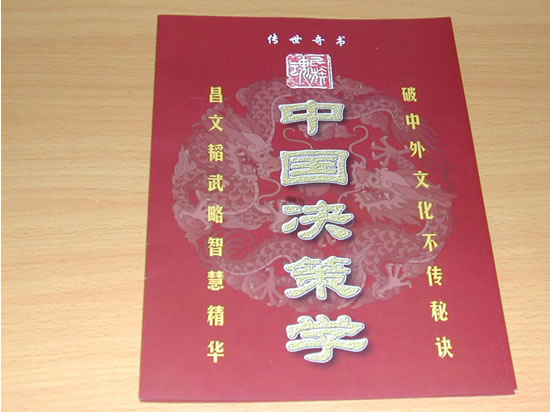 传世奇书
民族魂
中国决策学
破中外文化不传秘诀
昌文韬武略智慧精华